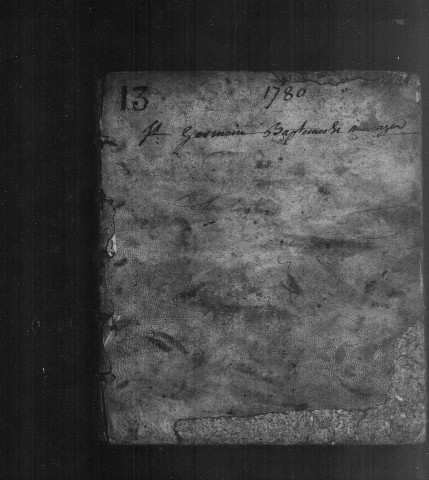 13 1780
St Germain Baptemes et mariages